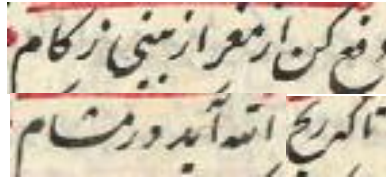 دفع کن از مغز از بینی زکام
تا که ریح الله آید در مشام